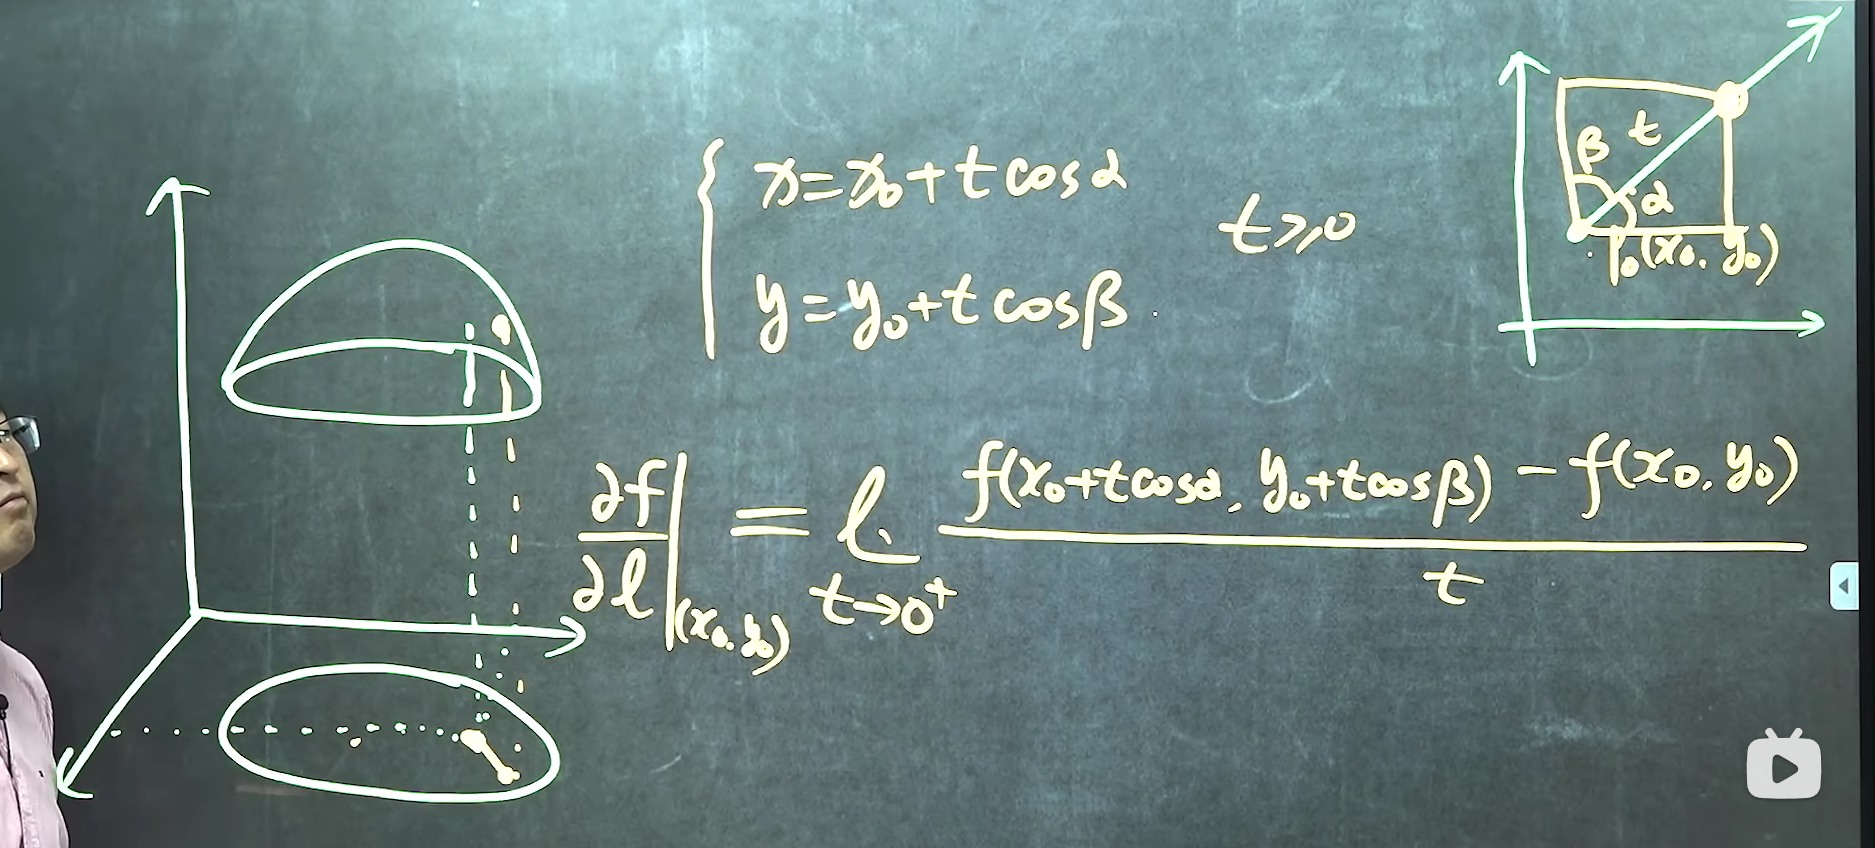 x=x₀+tcosα
t≥0
y=y₀+tcosβ
β t
α
P₀(x₀,y₀)
∂f/∂l|(x₀,y₀) = l. t→0⁺ f(x₀+tcosα, y₀+tcosβ) - f(x₀,y₀) / t